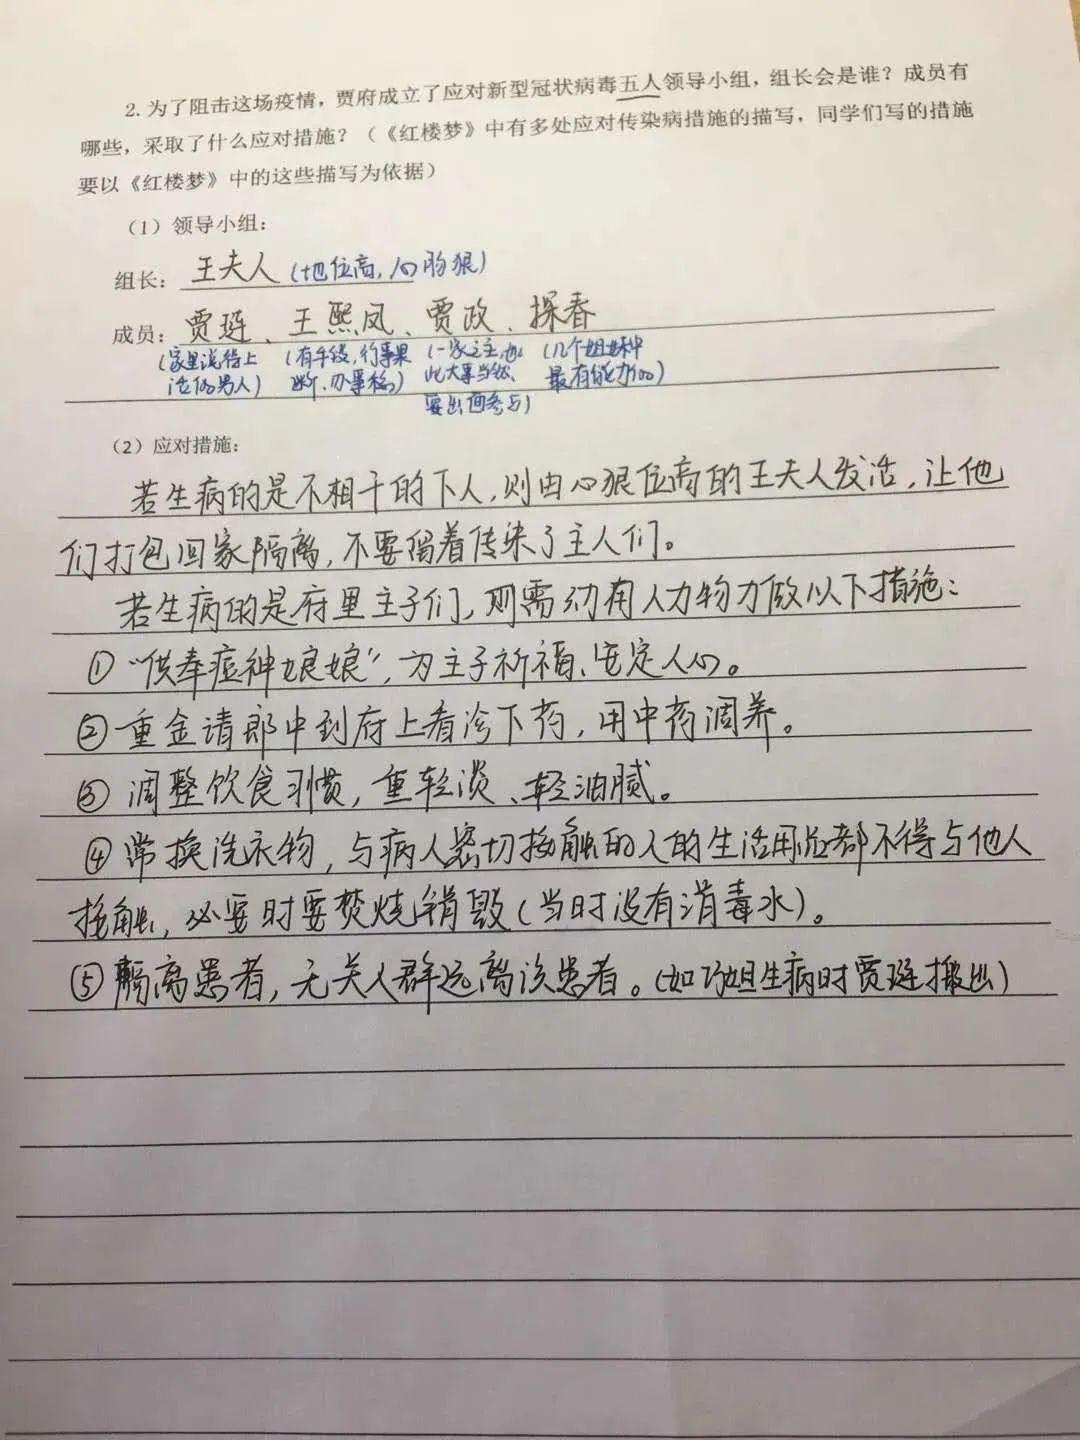 2.为了阻击这场疫情，贾府成立了应对新型冠状病毒五人领导小组，组长会是谁？成员有
哪些，采取了什么应对措施？（《红楼梦》中有多处应对传染病措施的描写，同学们写的措施
要以《红楼梦》中的这些描写为依据）
（1）领导小组：
组长：王夫人（地位高，心肠狠）
成员：贾琏、王熙凤、贾政、探春
（家里说得上
话的男人）
（有手段，行事果
断、办事稳）
（一家之主，如
此大事当然
要出面参与）
（几个姐妹中
最有能力的）
（2）应对措施：
若生病的是不相干的下人，则由心狠位高的王夫人发话，让他
们打包回家隔离，不要留着传染了主人们。
若生病的是府里主子们，则需动用人力物力做以下措施：
①“供奉痘神娘娘”，为主子祈福、安定人心。
②重金请郎中到府上看诊下药，用中药调养。
③调整饮食习惯，重轻淡、轻油腻。
④常换洗衣物，与病人密切接触的人的生活用品都不得与他人
接触，必要时要焚烧销毁（当时没有消毒水）。
⑤隔离患者，无关人群远离该患者。（如巧姐生病时贾琏搬出）